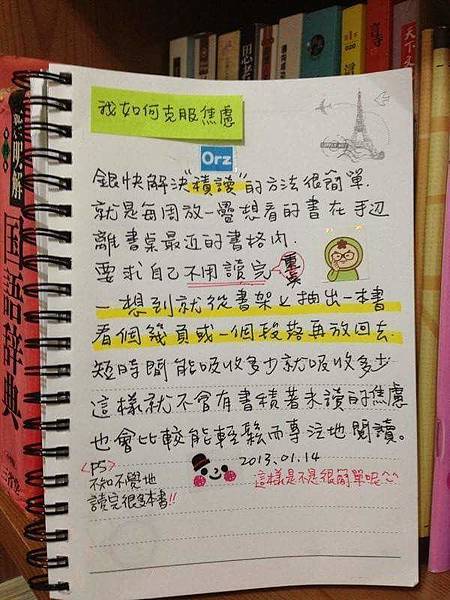 我如何克服焦慮
Orz
銀快解決"積讀"的方法很簡單.
就是每周放一疊想看的書在手边
離書桌最近的書格內.
要求自己不用讀完
重点
一想到就從書架上抽出一本書
看個幾頁或一個段落再放回去.
短時間能吸收多少就吸收多少
這樣就不會有書積著未讀的焦慮
也會比較能輕鬆而專注地閱讀。
<PS>
不知不覺地
讀完很多本書!!
2013.01.14
這樣是不是很簡單呢^^
国語辞典